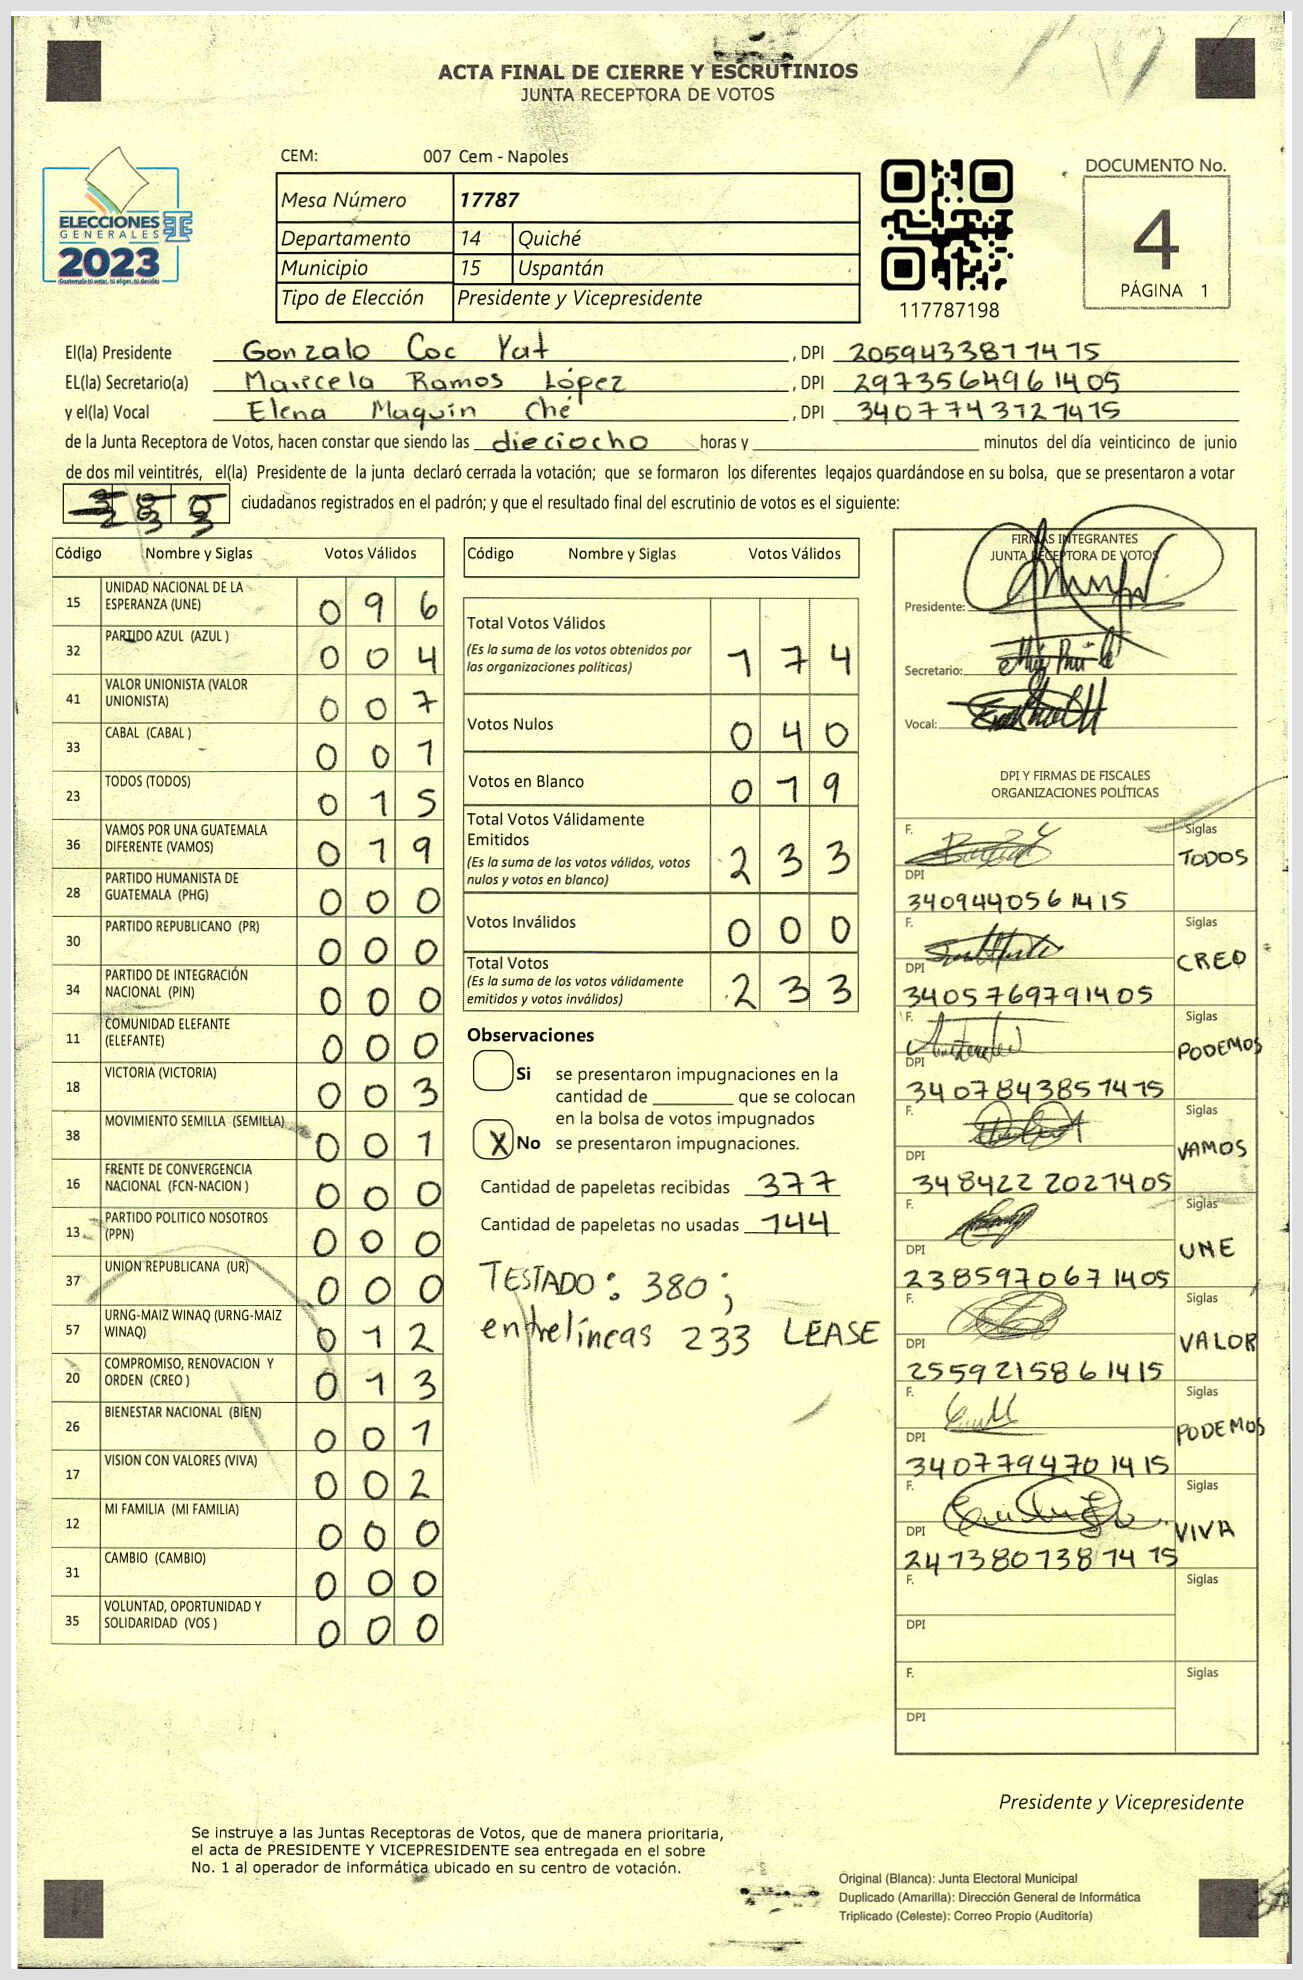 ACTA FINAL DE CIERRE Y ESCRUTINIOS
JUNTA RECEPTORA DE VOTOS
ELECCIONES
GENERALES
2023
CEM: 007 Cem - Napoles
Mesa Número 17787
Departamento 14 Quiché
Municipio 15 Uspantán
Tipo de Elección Presidente y Vicepresidente
117787198
DOCUMENTO No.
4
PÁGINA 1
El(la) Presidente Gonzalo Coc Yat , DPI 2059433871415
EL(la) Secretario(a) Maricela Ramos López , DPI 2973564961405
y el(la) Vocal Elena Maquin Ché , DPI 3407743121415
de la Junta Receptora de Votos, hacen constar que siendo las dieciocho horas y minutos del día veinticinco de junio
de dos mil veintitrés, el(la) Presidente de la junta declaró cerrada la votación; que se formaron los diferentes legajos guardándose en su bolsa, que se presentaron a votar
ciudadanos registrados en el padrón; y que el resultado final del escrutinio de votos es el siguiente:
Código Nombre y Siglas Votos Válidos
15 UNIDAD NACIONAL DE LA ESPERANZA (UNE) 0 9 6
32 PARTIDO AZUL (AZUL ) 0 0 4
41 VALOR UNIONISTA (VALOR UNIONISTA) 0 0 7
33 CABAL (CABAL ) 0 0 1
23 TODOS (TODOS) 0 1 5
36 VAMOS POR UNA GUATEMALA DIFERENTE (VAMOS) 0 1 9
28 PARTIDO HUMANISTA DE GUATEMALA (PHG) 0 0 0
30 PARTIDO REPUBLICANO (PR) 0 0 0
34 PARTIDO DE INTEGRACIÓN NACIONAL (PIN) 0 0 0
11 COMUNIDAD ELEFANTE (ELEFANTE) 0 0 0
18 VICTORIA (VICTORIA) 0 0 3
38 MOVIMIENTO SEMILLA (SEMILLA) 0 0 1
16 FRENTE DE CONVERGENCIA NACIONAL (FCN-NACION ) 0 0 0
13 PARTIDO POLITICO NOSOTROS (PPN) 0 0 0
37 UNION REPUBLICANA (UR) 0 0 0
57 URNG-MAIZ WINAQ (URNG-MAIZ WINAQ) 0 1 2
20 COMPROMISO, RENOVACION Y ORDEN (CREO ) 0 1 3
26 BIENESTAR NACIONAL (BIEN) 0 0 1
17 VISION CON VALORES (VIVA) 0 0 2
12 MI FAMILIA (MI FAMILIA) 0 0 0
31 CAMBIO (CAMBIO) 0 0 0
35 VOLUNTAD, OPORTUNIDAD Y SOLIDARIDAD (VOS ) 0 0 0
Código Nombre y Siglas Votos Válidos
Total Votos Válidos 1 7 4
(Es la suma de los votos obtenidos por
las organizaciones políticas)
Votos Nulos 0 4 0
Votos en Blanco 0 1 9
Total Votos Válidamente
Emitidos 2 3 3
(Es la suma de los votos válidos, votos
nulos y votos en blanco)
Votos Inválidos 0 0 0
Total Votos 2 3 3
(Es la suma de los votos válidamente
emitidos y votos inválidos)
Observaciones
Si se presentaron impugnaciones en la
cantidad de que se colocan
en la bolsa de votos impugnados
X No se presentaron impugnaciones.
Cantidad de papeletas recibidas 377
Cantidad de papeletas no usadas 144
TESTADO: 380;
entrelíneas 233 LEASE
FIRMAS INTEGRANTES
JUNTA RECEPTORA DE VOTOS
Presidente:
Secretario:
Vocal:
DPI Y FIRMAS DE FISCALES
ORGANIZACIONES POLÍTICAS
F. Siglas TODOS
DPI 3409440561415
F. Siglas CREO
DPI 3405769791405
F. Siglas PODEMOS
DPI 3407843851415
F. Siglas VAMOS
DPI 3484222021405
F. Siglas UNE
DPI 2385970671405
F. Siglas VALOR
DPI 2559215861415
F. Siglas PODEMOS
DPI 3407794701415
F. Siglas VIVA
DPI 2473807381415
F. Siglas
DPI
F. Siglas
DPI
Presidente y Vicepresidente
Se instruye a las Juntas Receptoras de Votos, que de manera prioritaria,
el acta de PRESIDENTE Y VICEPRESIDENTE sea entregada en el sobre
No. 1 al operador de informática ubicado en su centro de votación.
Original (Blanca): Junta Electoral Municipal
Duplicado (Amarilla): Dirección General de Informática
Triplicado (Celeste): Correo Propio (Auditoría)